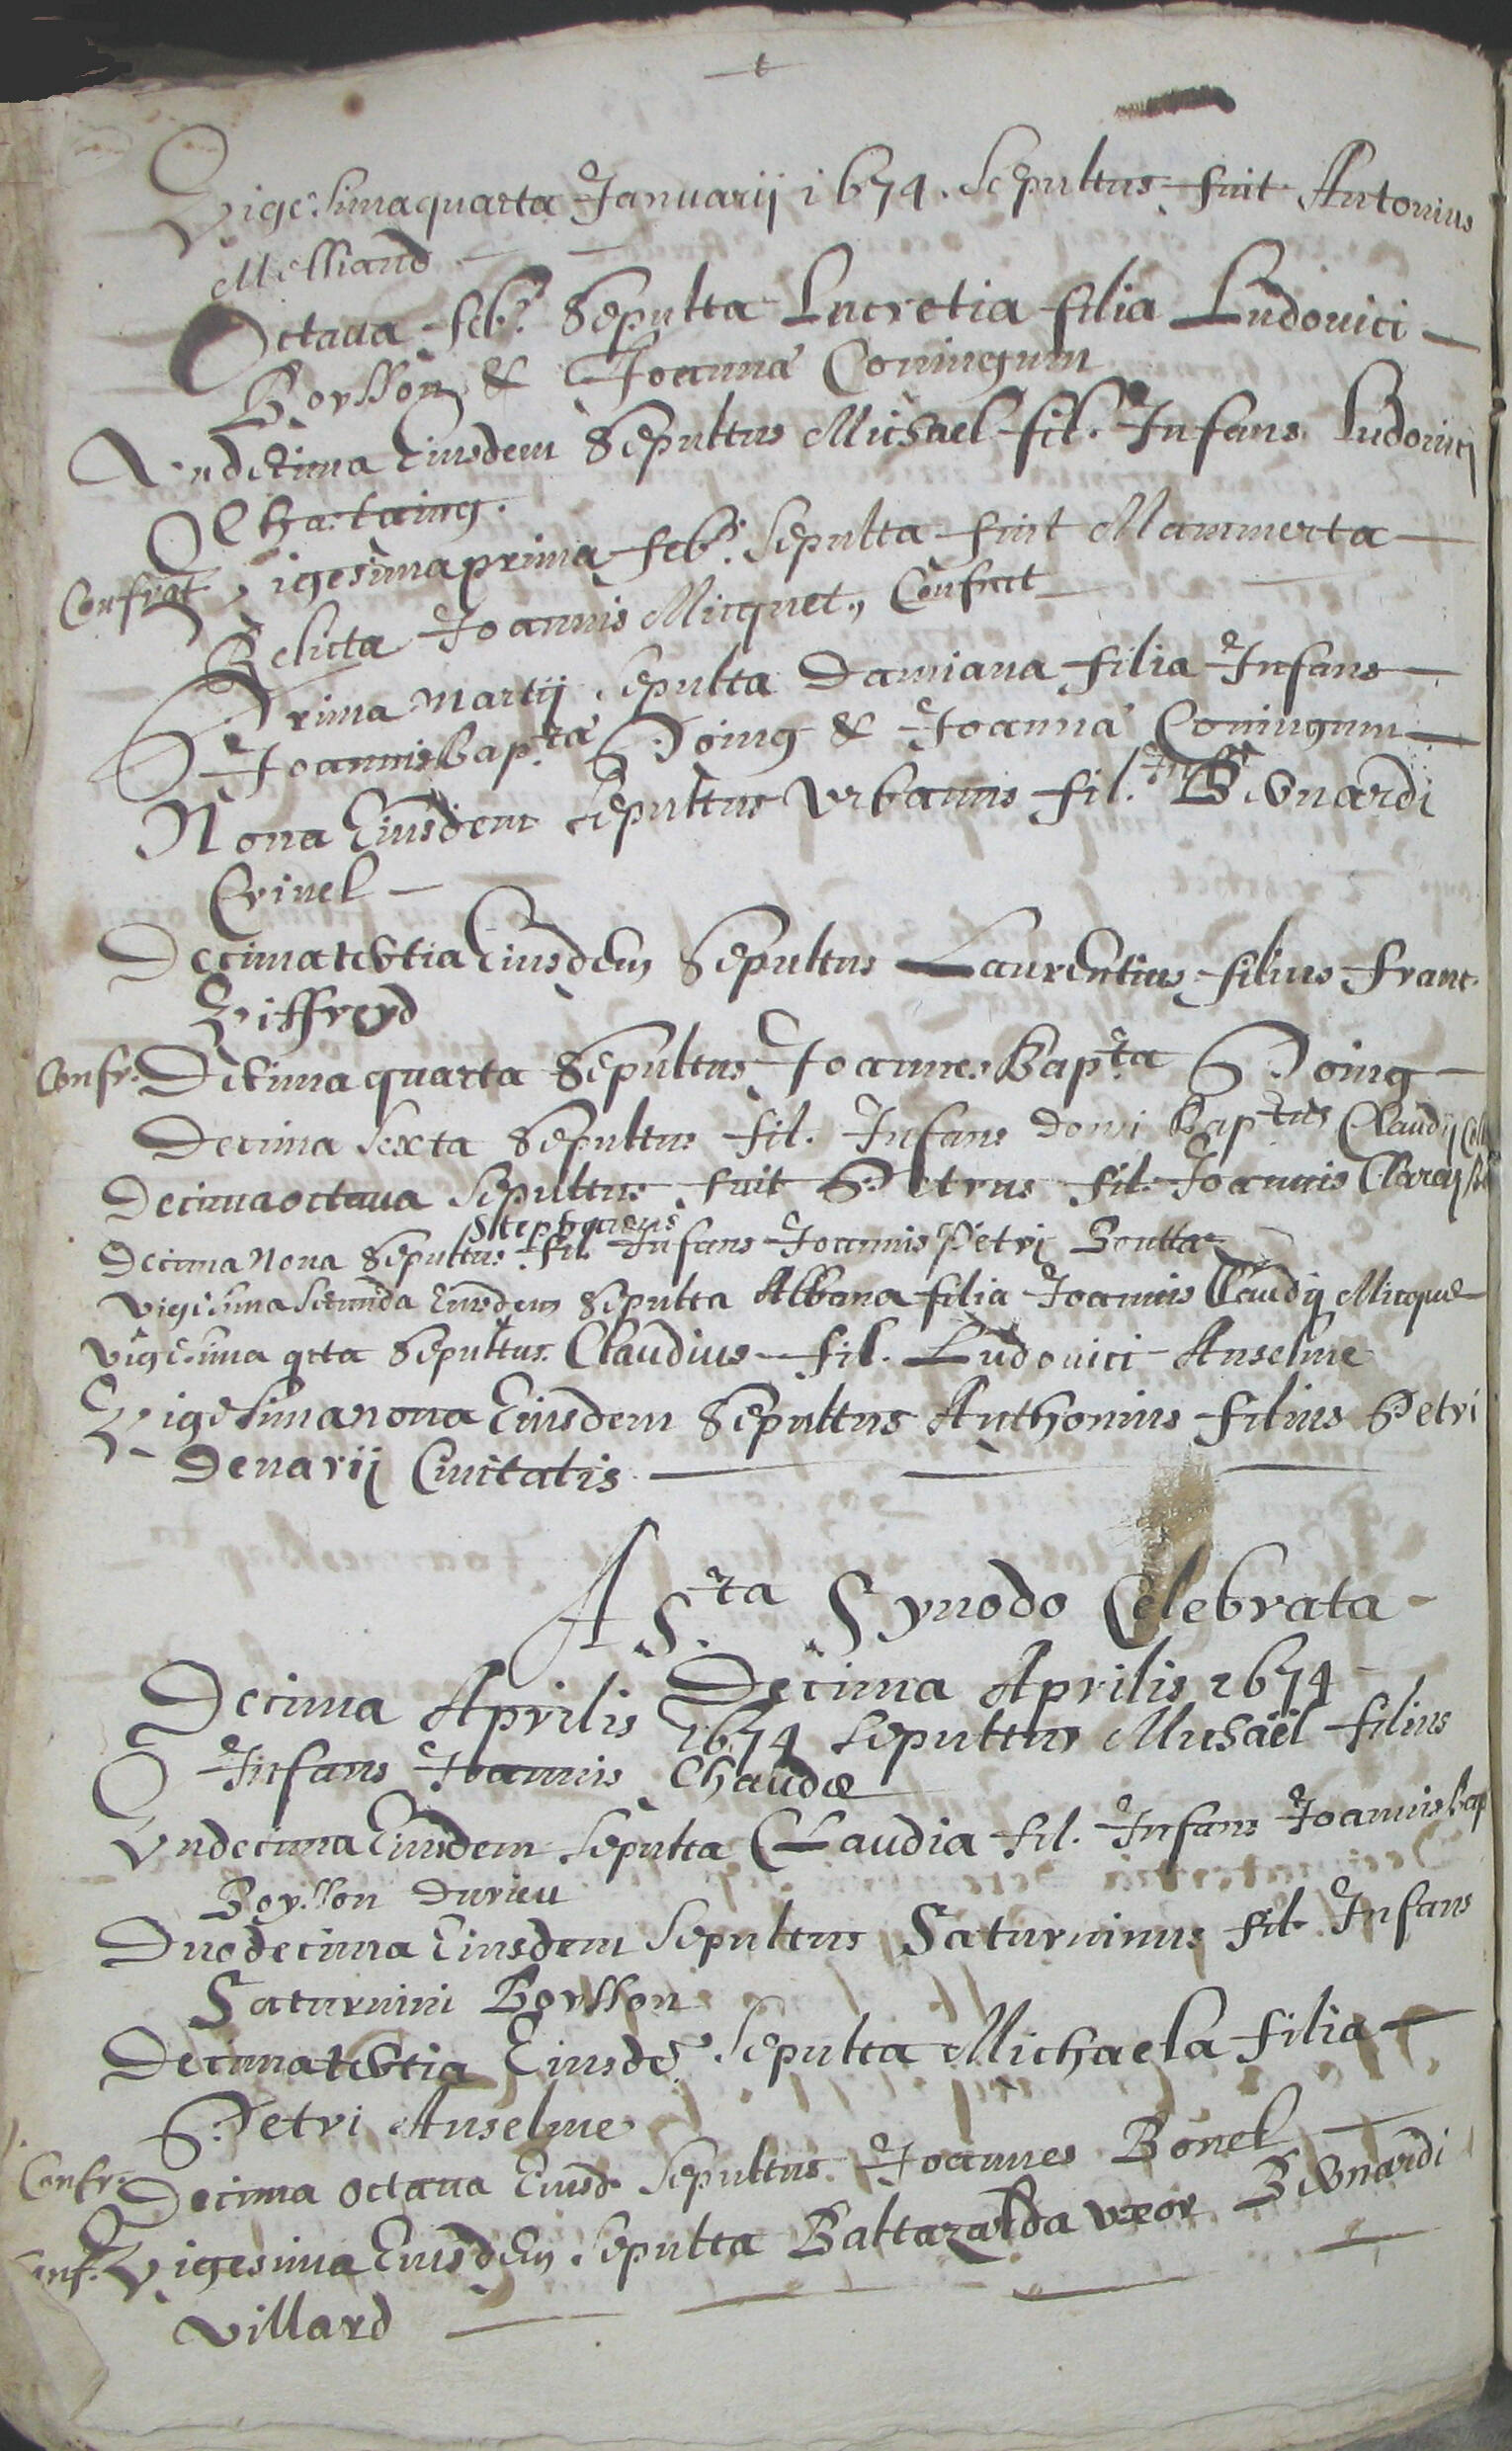 +
Vigesimaquarta Januarij 1674. Sepultus fuit Antonius
Melliand
Octaua feb. Sepulta Lucretia filia Ludouici
Boysson & Joanna Coniugum
Vndecima Eiusdem Sepultus Michael fil. Infans Ludouici
Chastaing.
Confrat Vigesimaprima feb. Sepulta fuit Mammerta
Relicta Joannis Micquet, Confrat
Prima Martij Sepulta Damiana filia Infans
JoannisBap.ta Poing & Joanna Coniugum
Nona Eiusdem Sepultus Vrbanus fil. Inf. Bernardi
Crinel
Decimatertia Eiusdem Sepultus Laurentius filius Franc.
Viffreyd
Confr. Decimaquarta Sepultus JoannesBap.ta Poing
Decima Sexta Sepultus fil. Infans domi Baptus Claudij
Decimaoctaua Sepultus fuit Petrus fil. Joannis
Stephanus
Decima Nona Sepultus fil. Infans Joannis Petri Boutta
Vigesima Secunda Eiusdem Sepulta Albana filia Joannis Claudij
Vigesima qrta Sepultus Claudius fil. Ludouici Anselme
Vigesimanona Eiusdem Sepultus Anthonius filius Petri
Denarij Ciuitatis
A S.ta Synodo Celebrata
Decima Aprilis 1674
Decima Aprilis 1674 Sepultus Michael filius
Infans Joannis Chaudæ
Vndecima Eiusdem Sepulta Claudia fil. Infans JoannisBap
Boysson Durieu
Duodecima Eiusdem Sepultus Saturninus fil. Infans
Saturnini Boysson
Decimatertia Eiusdē Sepulta Michaela filia
Petri Anselme
Confr. Decima octaua Eiusd. Sepultus Joannes Bonel
Conf. Vigesima Eiusdem Sepulta Baltazarda vxor Bernardi
Villard